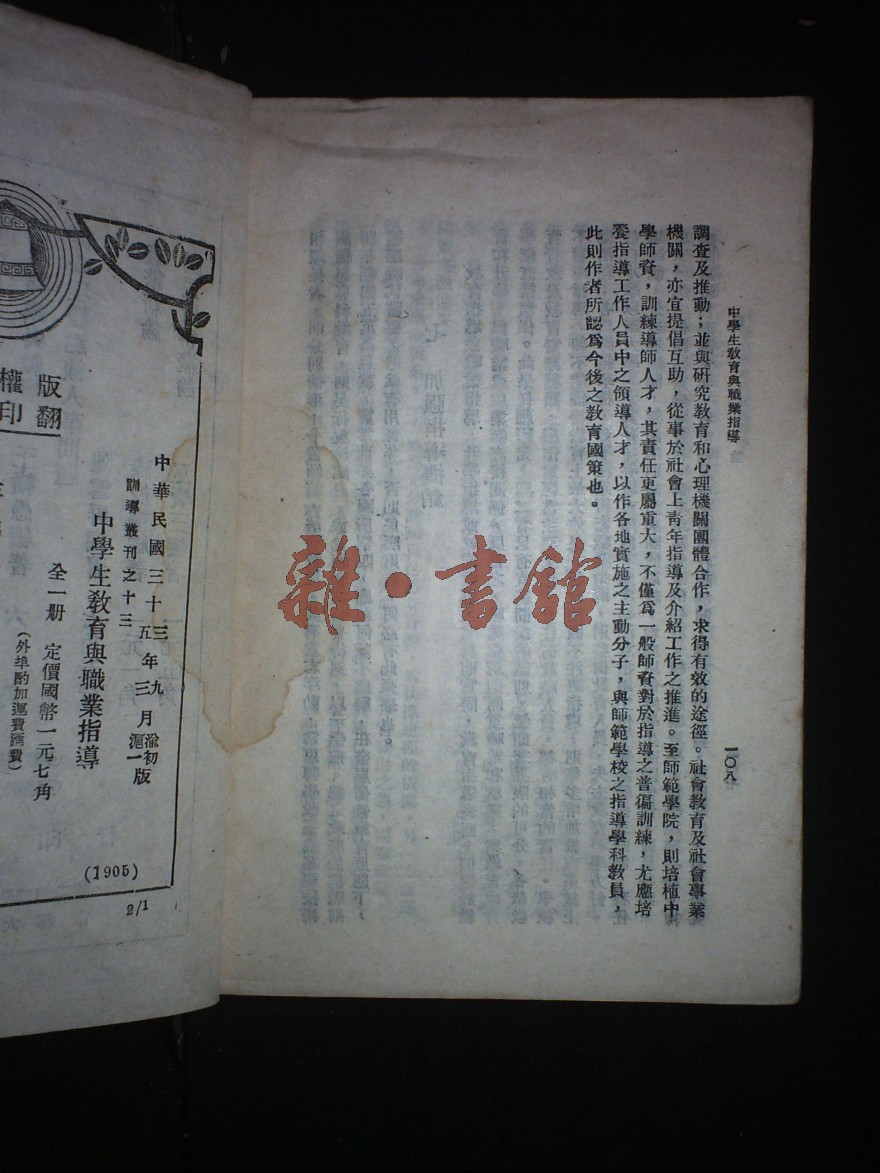 中學生敎育與職業指導
一〇八
調查及推動；並與研究敎育和心理機關團體合作，求得有效的途徑。社會敎育及社會事業
機關，亦宜提倡互助，從事於社會上靑年指導及介紹工作之推進。至師範學院，則培植中
學師資，訓練導師人才，其責任更屬重大，不僅爲一般師資對於指導之普徧訓練，尤應培
養指導工作人員中之領導人才，以作各地實施之主動分子，與師範學校之指導學科敎員，
此則作者所認爲今後之敎育國策也。
雜·書館
中華民國三十三年九月渝初版
五三滬一
訓導叢刊之十三
中學生敎育與職業指導
全一册 定價國幣一元七角
（外埠酌加運費匯費）
版權
翻印
(1905)
2/1